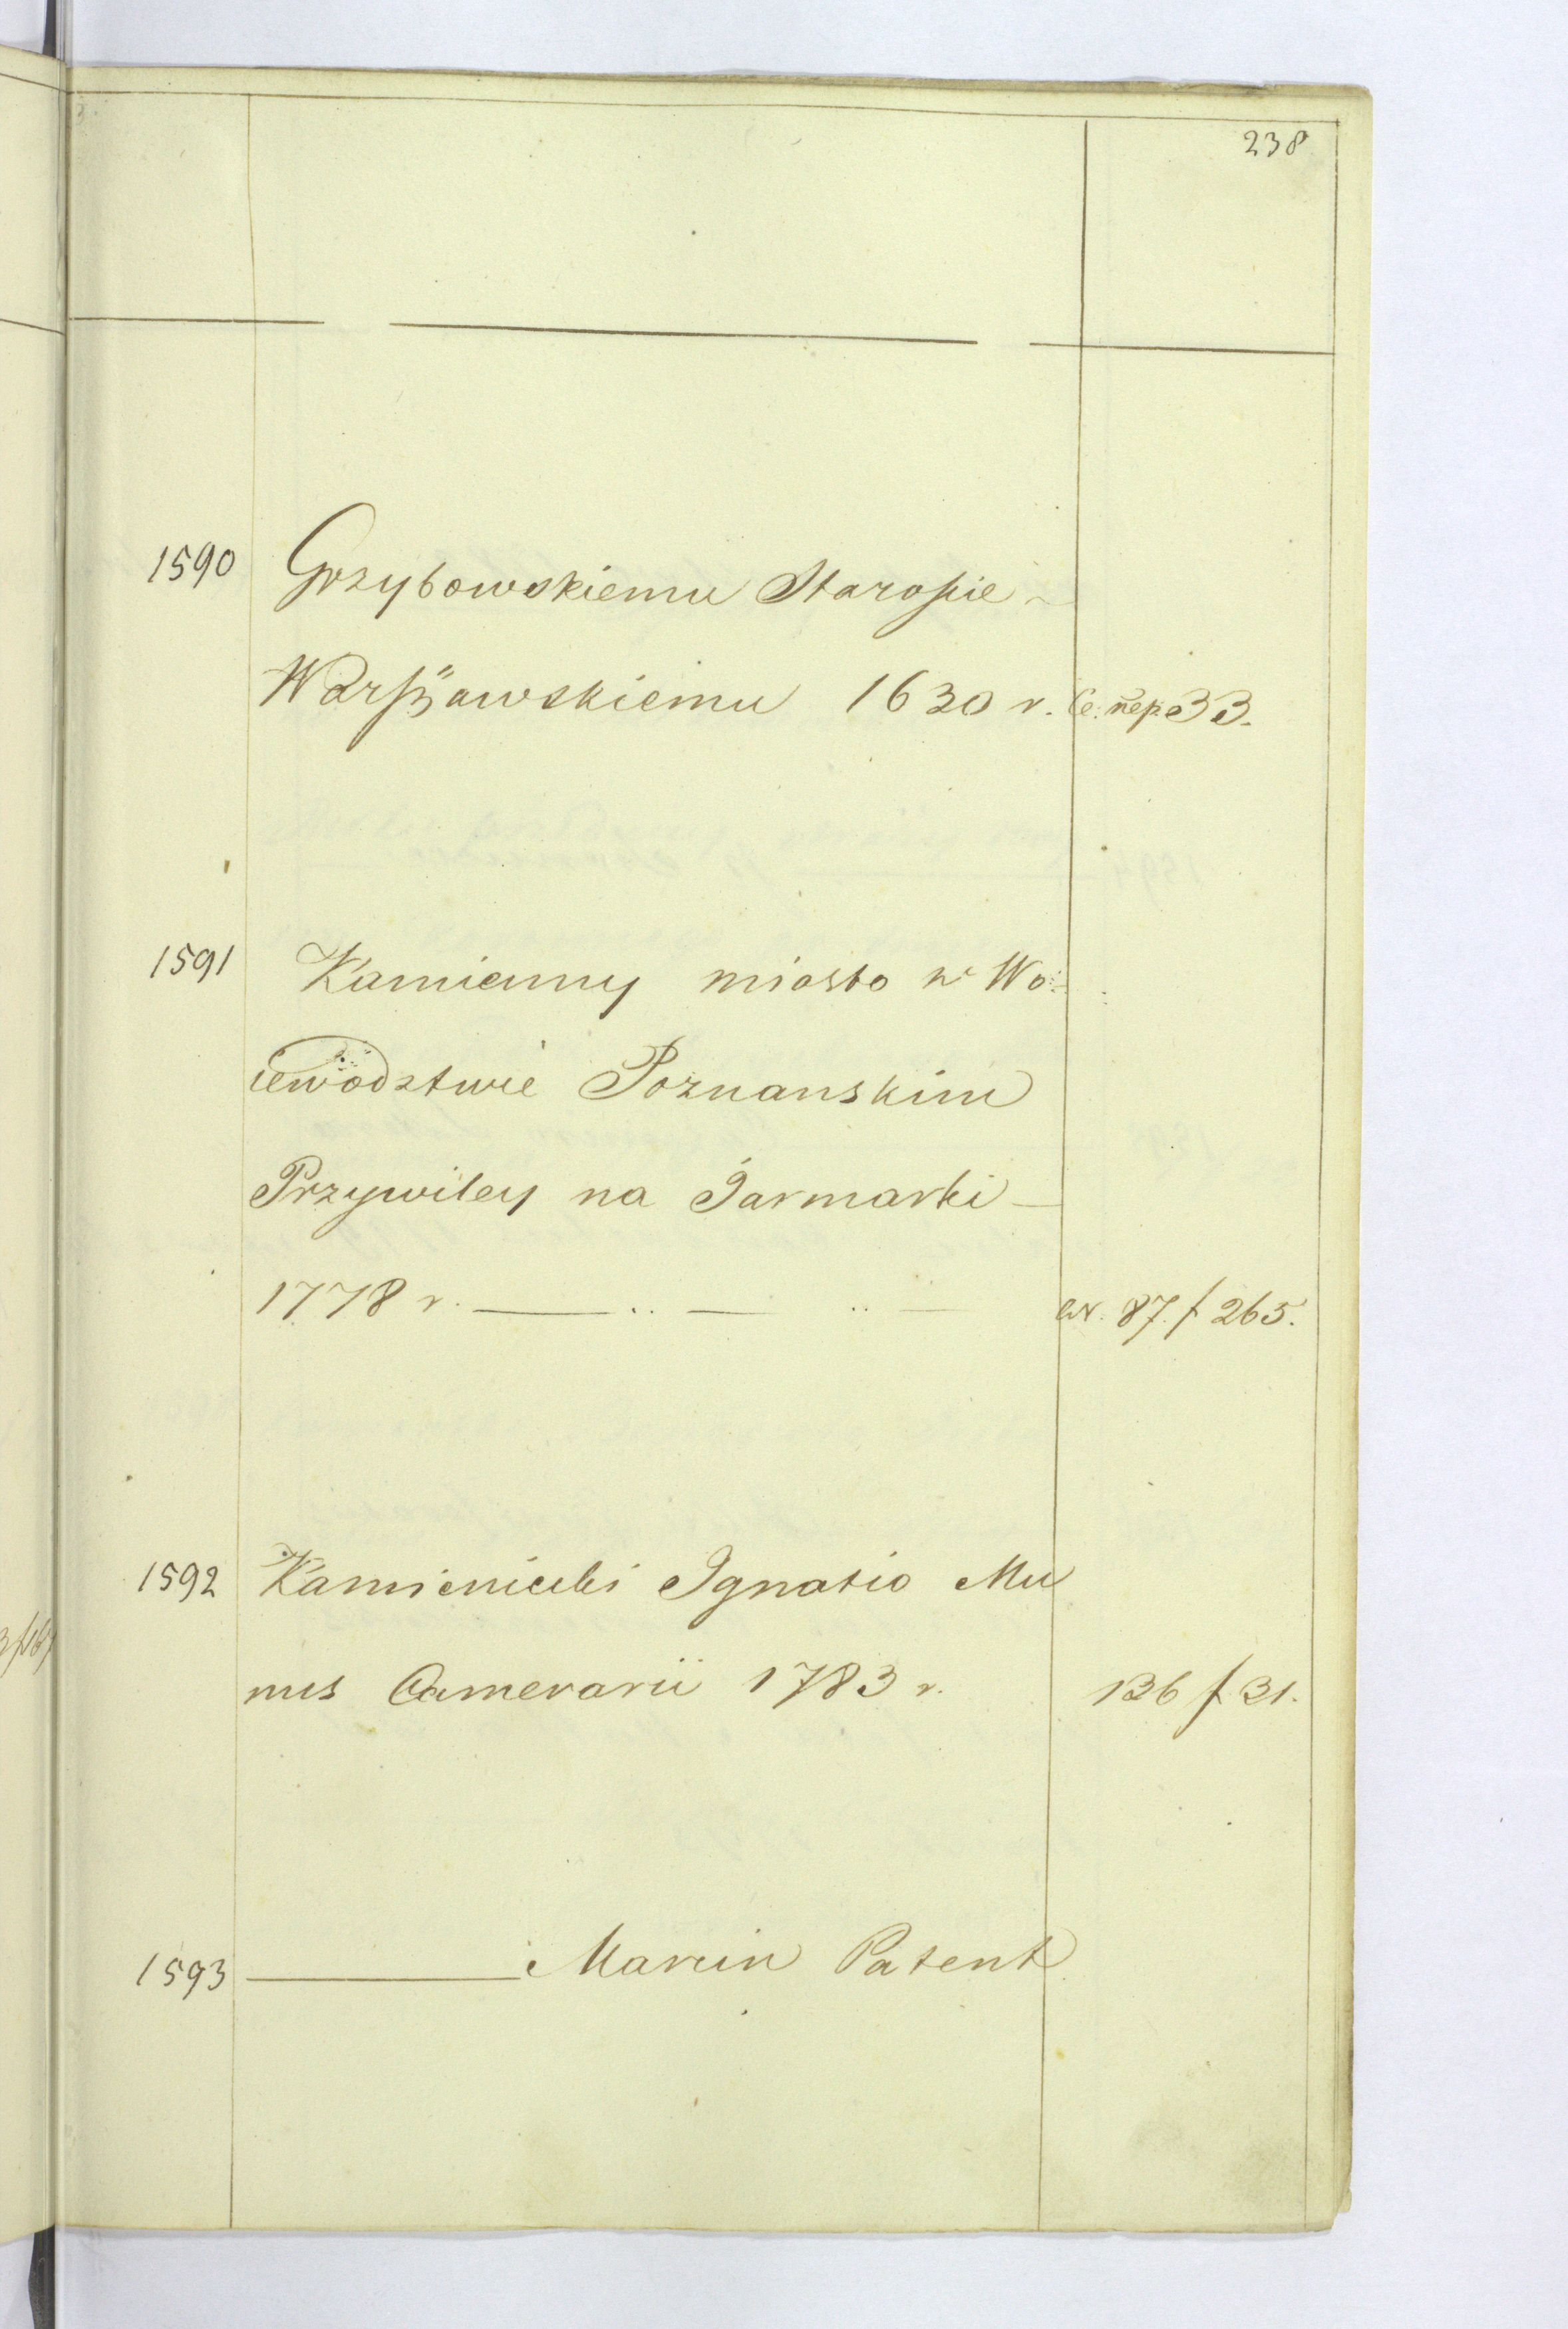 238
1590 Grzybowskiemu Starosie
Warszawskiemu 1630 r. 33.
1591 Kamienny miasto w Wo
iewodztwie Poznanskim
Przywiley na Jarmarki
1778 r. 87. f 265.
1592 Kamienicki Ignatio Mu
nus Camerarii 1783 r. 136 f 31.
1593 Marcin Patent